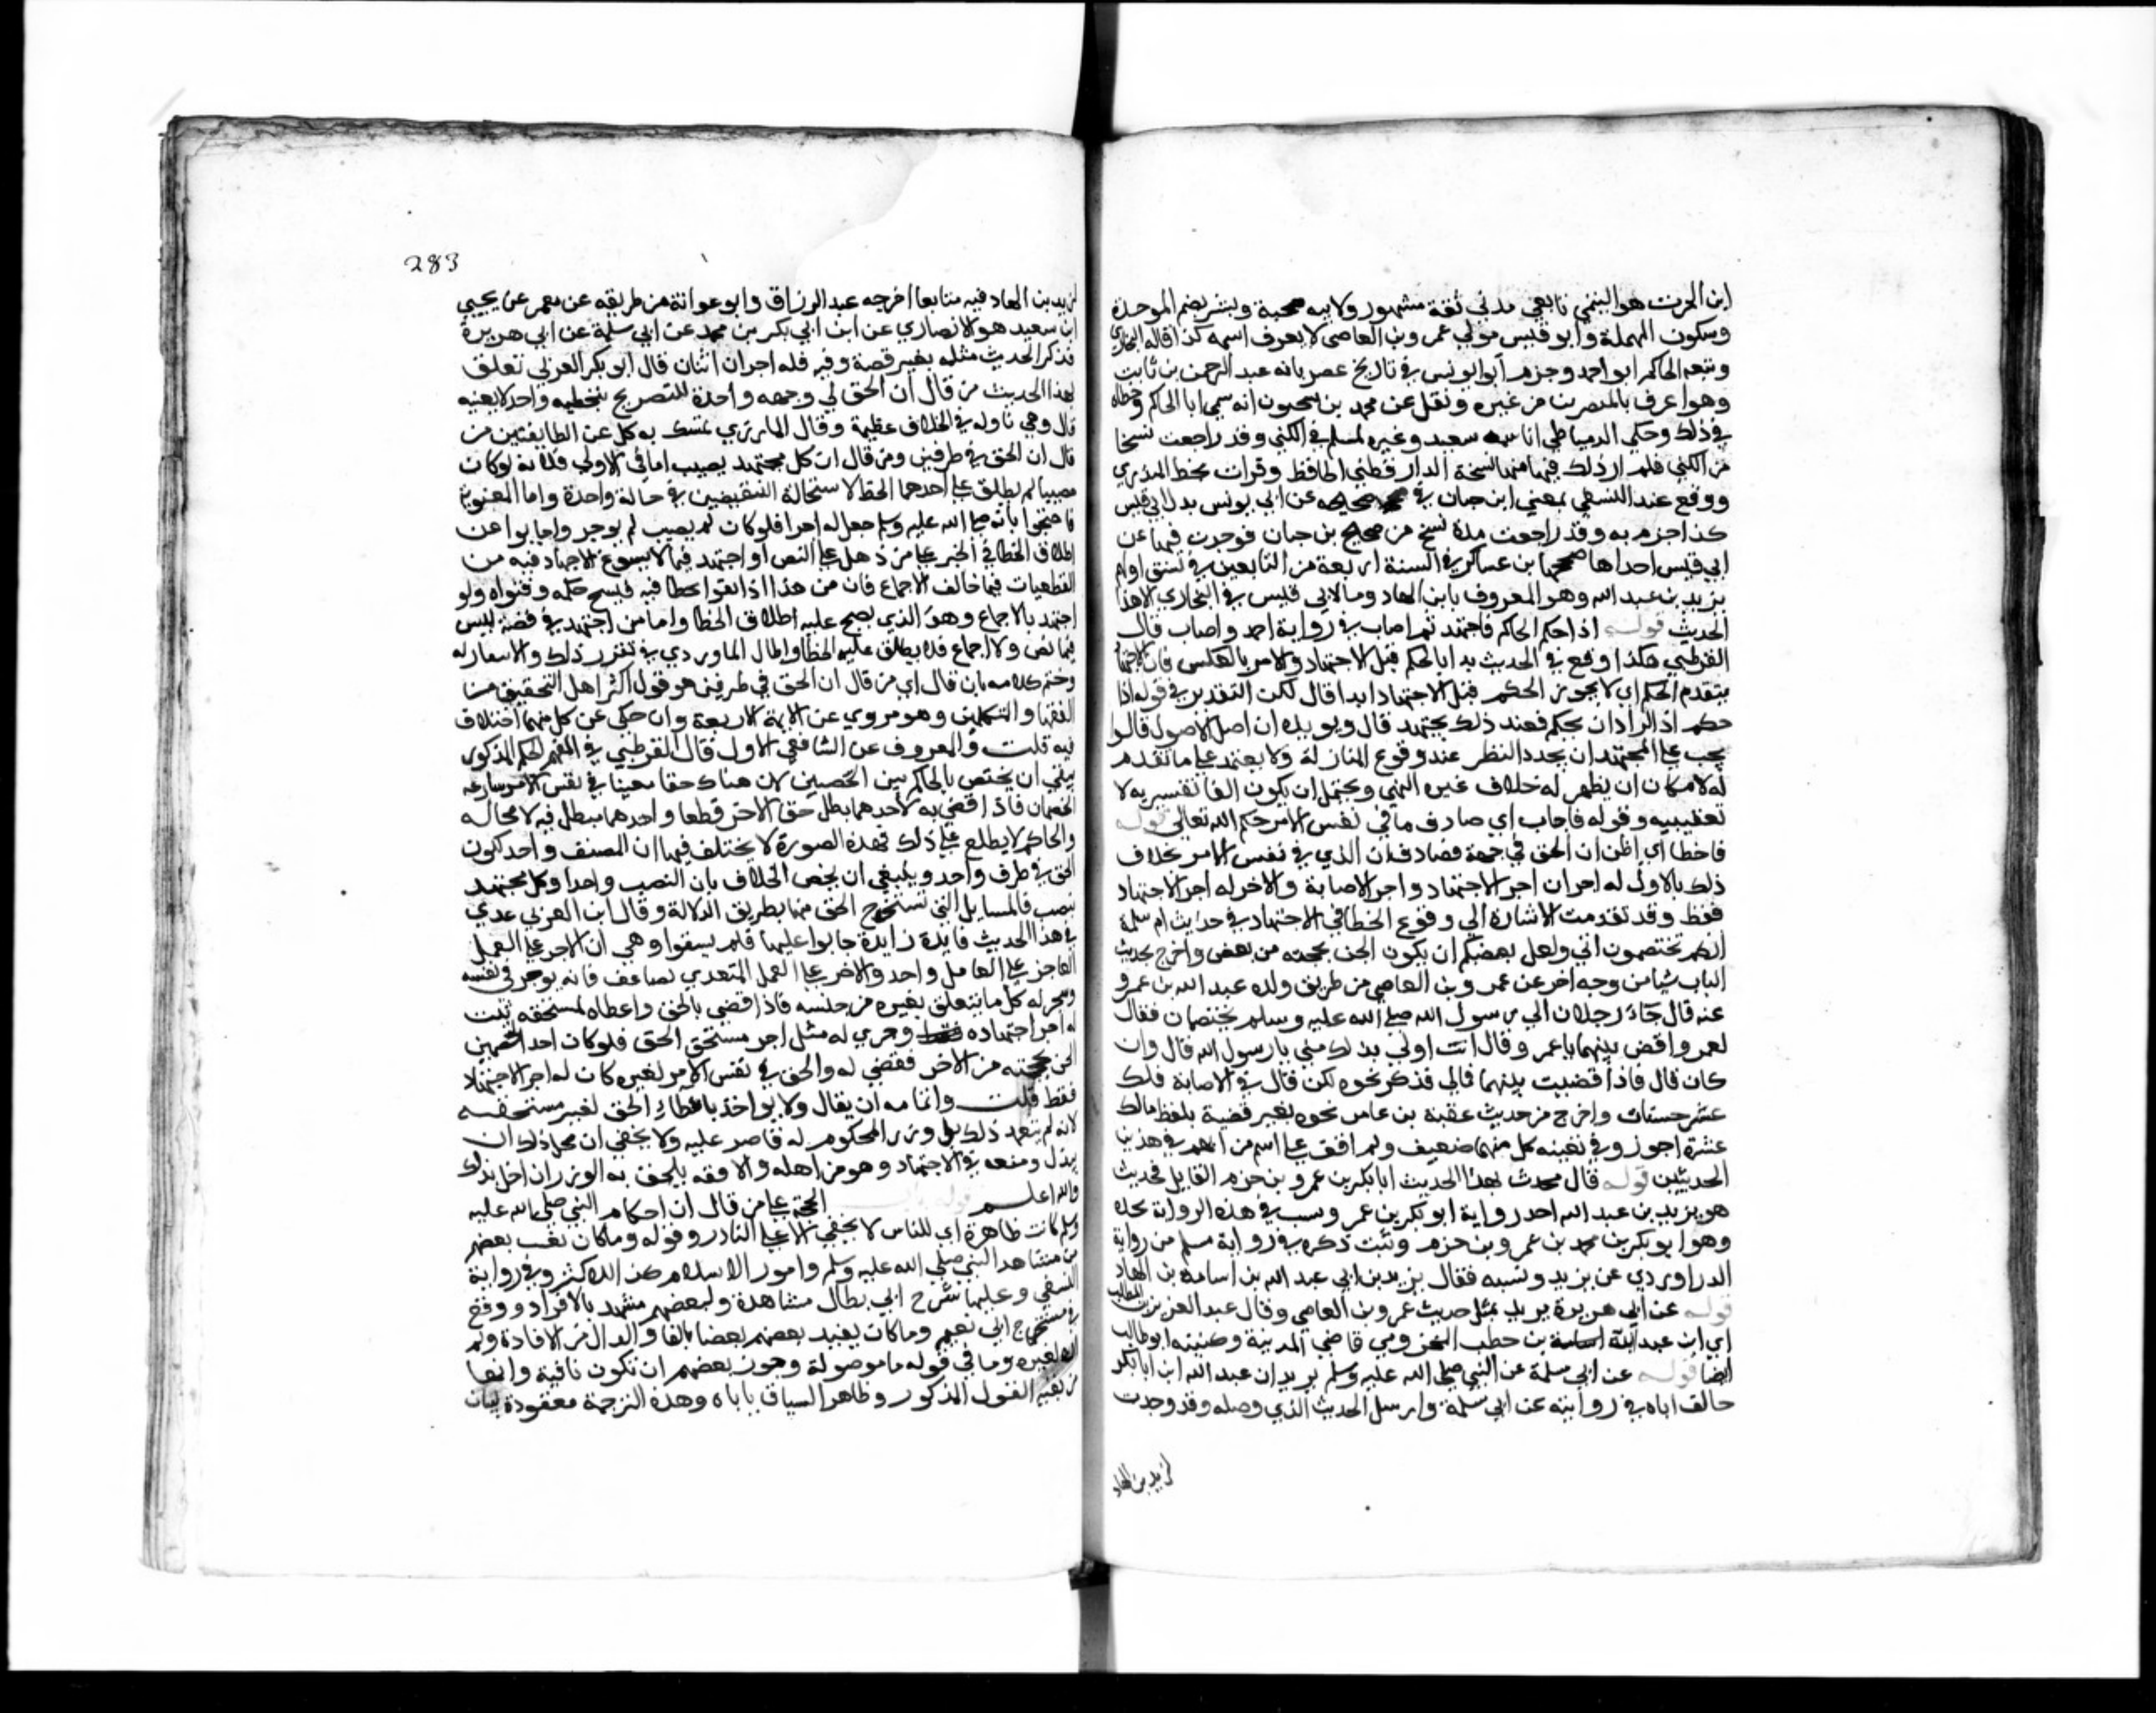 ابن الحرث هو التيمي تابعي مدني ثقة مشهور ولابيه صحبة وبشر بضم الموحدة
وسكون المهملة وابو قيس مولي عمرو بن العاصي لا يعرف اسمه كذا قاله البخاري
وتبعه الحاكم ابو احمد وجزم ابو يونس في تاريخ مصر بانه عبد الرحمن بن ثابت
وهو اعرف بالمصريين من غيره ونقل عن محمد بن سحنون انه سمي ابا الحاكم وخطاه
في ذلك وحكي الدمياطي ان اسمه سعيد وغيره لمسلم في الكني وقد راجعت نسخا
من الكني فلم ار ذلك فيها منها نسخة الدارقطني الحافظ وقرات بخط المنذري
ووقع عند النسفي بمعني ابن حبان في صحيحه عن ابي يونس بدل ابي قيس
كذا جزم به وقد راجعت مدة نسخ من صحيح بن حبان فوجدت فيها عن
ابي قيس احداها صححها بن عساكر في السنة اربعة من التابعين في نسق اولهم
يزيد بن عبد الله وهو المعروف بابن الهاد وما لابي قيس في البخاري الا هذا
الحديث قوله اذا حكم الحاكم فاجتهد ثم اصاب في رواية احمد واصاب قال
القرطبي هكذا وقع في الحديث بدا بالحكم قبل الاجتهاد والامر بالعكس فان الاجتهاد
يتقدم الحكم اي لا يجوز الحكم قبل الاجتهاد ابدا قال لكن التقدير في قوله اذا
حكم اذا اراد ان يحكم فعند ذلك يجتهد قال ويويده ان اصل الاصول قالوا
يجب علي المجتهد ان يجدد النظر عند وقوع النازلة ولا يعتمد علي ما تقدم
له لامكان ان يظهر له خلاف غيره انتهي ويحتمل ان يكون الفا تفسيرية لا
تعقيبية وقوله فاصاب اي صادف ما في نفس الامر حكم الله تعالي قوله
فاخطا اي ظن ان الحق في جهة فصادف ان الذي في نفس الامر بخلاف
ذلك بالاول له اجران اجر الاجتهاد واجر الاصابة والاخر له اجر الاجتهاد
فقط وقد تقدمت الاشارة الي وقوع الخطا في الاجتهاد في حديث ام سلمة
انكم تختصمون الي ولعل بعضكم ان يكون الحن بحجته من بعض واخرج لحديث
الباب شيا من وجه اخر عن عمرو بن العاصي من طريق ولده عبد الله بن عمرو
عنه قال جاء رجلان الي رسول الله صلي الله عليه وسلم يختصمان فقال
لعمرو اقض بينهما يا عمرو قال انت اولي بذلك مني يا رسول الله قال وان
كان قال فاذا قضيت بينهما فالي فذكر نحوه لكن قال في الاصابة فلك
عشر حسنات واخرج من حديث عقبة بن عامر نحوه بغير قصة بلفظ فالك
عشرة اجور وفي نفيه كل منهما ضعيف ولم اقف علي اسم من ابهم في هذين
الحديثين قوله قال فحدثت بهذا الحديث ابا بكر بن عمرو بن حزم القايل فحدثت
هو يزيد بن عبد الله احد رواية ابو بكر بن عمر ونسب في هذه الرواية بجده
وهو ابو بكر بن محمد بن عمرو بن حزم وثبت ذكره في رواية مسلم من رواية
الدراوردي عن يزيد ونسبه فقال يزيد بن ابي عبد الله بن اسامة بن الهاد
قوله عن ابي هريرة يريد بمثل حديث عمرو بن العاصي وقال عبد العزيز بن المطلب
اي ابن عبد الله بن حطب المخزومي قاضي المدينة وكنيته ابو طالب
ايضا قوله عن ابي سلمة عن النبي صلي الله عليه وسلم يريد ان عبد الله ابن ابا بكر
خالف اباه في روايته عن ابي سلمة وارسل الحديث الذي وصله وقد وجدت
ليزيد بن الهاد
283
ليزيد بن الهاد فيه متابعا اخرجه عبد الرزاق وابو عوانة من طريقه عن معمر عن يحيي
ابن سعيد هو الانصاري عن ابن ابي بكر بن محمد عن ابي سلمة عن ابي هريرة
فذكر الحديث مثله بغير قصة وفيه فله اجران اثنان قال ابو بكر العربي تعلق
بهذا الحديث من قال ان الحق لي وجهه واحدة للتصريح بتخطيه واحد لا بعينه
قال وهي نازلة في الخلاف عظيمة وقال المازري تمسك به كل عن الطايفتين من
قال ان الحق في طرفين ومن قال ان كل مجتهد يصيب اما في الاولي فلانه لو كان
مصيبا لم يطلق علي احدهما الخطا لاستحالة النقيضين في حالة واحدة واما المصوبة
فاحتجوا بانه صلي الله عليه وسلم جعل له اجرا فلو كان لم يصب لم يوجر واجابوا عن
اطلاق الخطا في الخبر علي من ذهل علي النص او اجتهد فيما لا يسوغ الاجتهاد فيه من
القطعيات فيما خالف الاجماع فان من هذا اذا اتفق الخطا فيه فيسخ حكمه وفتواه ولو
اجتهد بالاجماع وهو الذي يصح عليه اطلاق الخطا واما من اجتهد في قصة ليس
فيها نص ولا اجماع فلا يطلق عليه الخطا واطال الماوردي في تقرير ذلك والانتصار له
وختم كلامه بان قال اي من قال ان الحق في طرفين هو قول اكثر اهل التحقيق من
الفقها والمتكلمين وهو مروي عن الايمة الاربعة وان حكي عن كل منهما اختلاف
فيه قلت والمعروف عن الشافعي الاول قال القرطبي في المفهم الحكم المذكور
ينبغي ان يختص بالحاكم بين الخصمين لان هناك حقا معينا في نفس الامر تنازعه
الخصمان فاذا قضي به لاحدهما بطل حق الاخر قطعا واحدهما مبطل فيه لا محالة
والحاكم لا يطلع علي ذلك فهذه الصورة لا يختلف فيها ان المصنف واحد لكون
الحق في طرف واحد وينبغي ان يخص الخلاف بان النصيب واحد او كل مجتهد
نصيب فالمسايل التي تستخرج الحق منها بطريق الدلالة وقال ابن العربي عندي
في هذا الحديث فايدة زايدة حابوا عليها فلم يسقوا وهي ان الاجر علي العمل
العاجز علي العامل واحد والاخر علي العمل المتعدي تضاعف فانه يوجر في نفسه
ويجر له كل ما يتعلق بغيره من جنسه فاذا قضي بالحق واعطاه لمستحقه ثبت
له اجر اجتهاده وجري له مثل اجر مستحق الحق فلو كان احد الخصمين
الحن بحجته من الاخر فقضي له والحق في نفس الامر لغيره كان له اجر الاجتهاد
فقط قلت وانما مه ان يقال ولا يواخذ باعطاء الحق لغير مستحقه
لانه لم يتعمد ذلك بل وزر المحكوم له قاصر عليه ولا يخفي ان محل ذلك ان
يبذل وسعه في الاجتهاد وهو من اهله والا فقد يلحق به الوزر ان اخل بذلك
والله اعلم قوله باب الحجة علي من قال ان احكام النبي صلي الله عليه
وسلم كانت ظاهرة اي للناس لا تخفي الا علي النادر وقوله وما كان يغيب بعضهم
من مشاهد النبي صلي الله عليه وسلم وامور الاسلام كذا للاكثر وفي رواية
النسفي وعليها شرح ابي بطال مشاهدة ولبعضهم مشهد بالافراد ووقع
في مستخرج ابي نعيم وما كان يفيد بعضهم بعضا بالفا والدال من الافادة ولم
اره لغيره وما في قوله ما موصولة وجوز بعضهم ان تكون نافية وانها
من بقية القول المذكور وظاهر السياق ياباه وهذه الترجمة معقودة لبيان